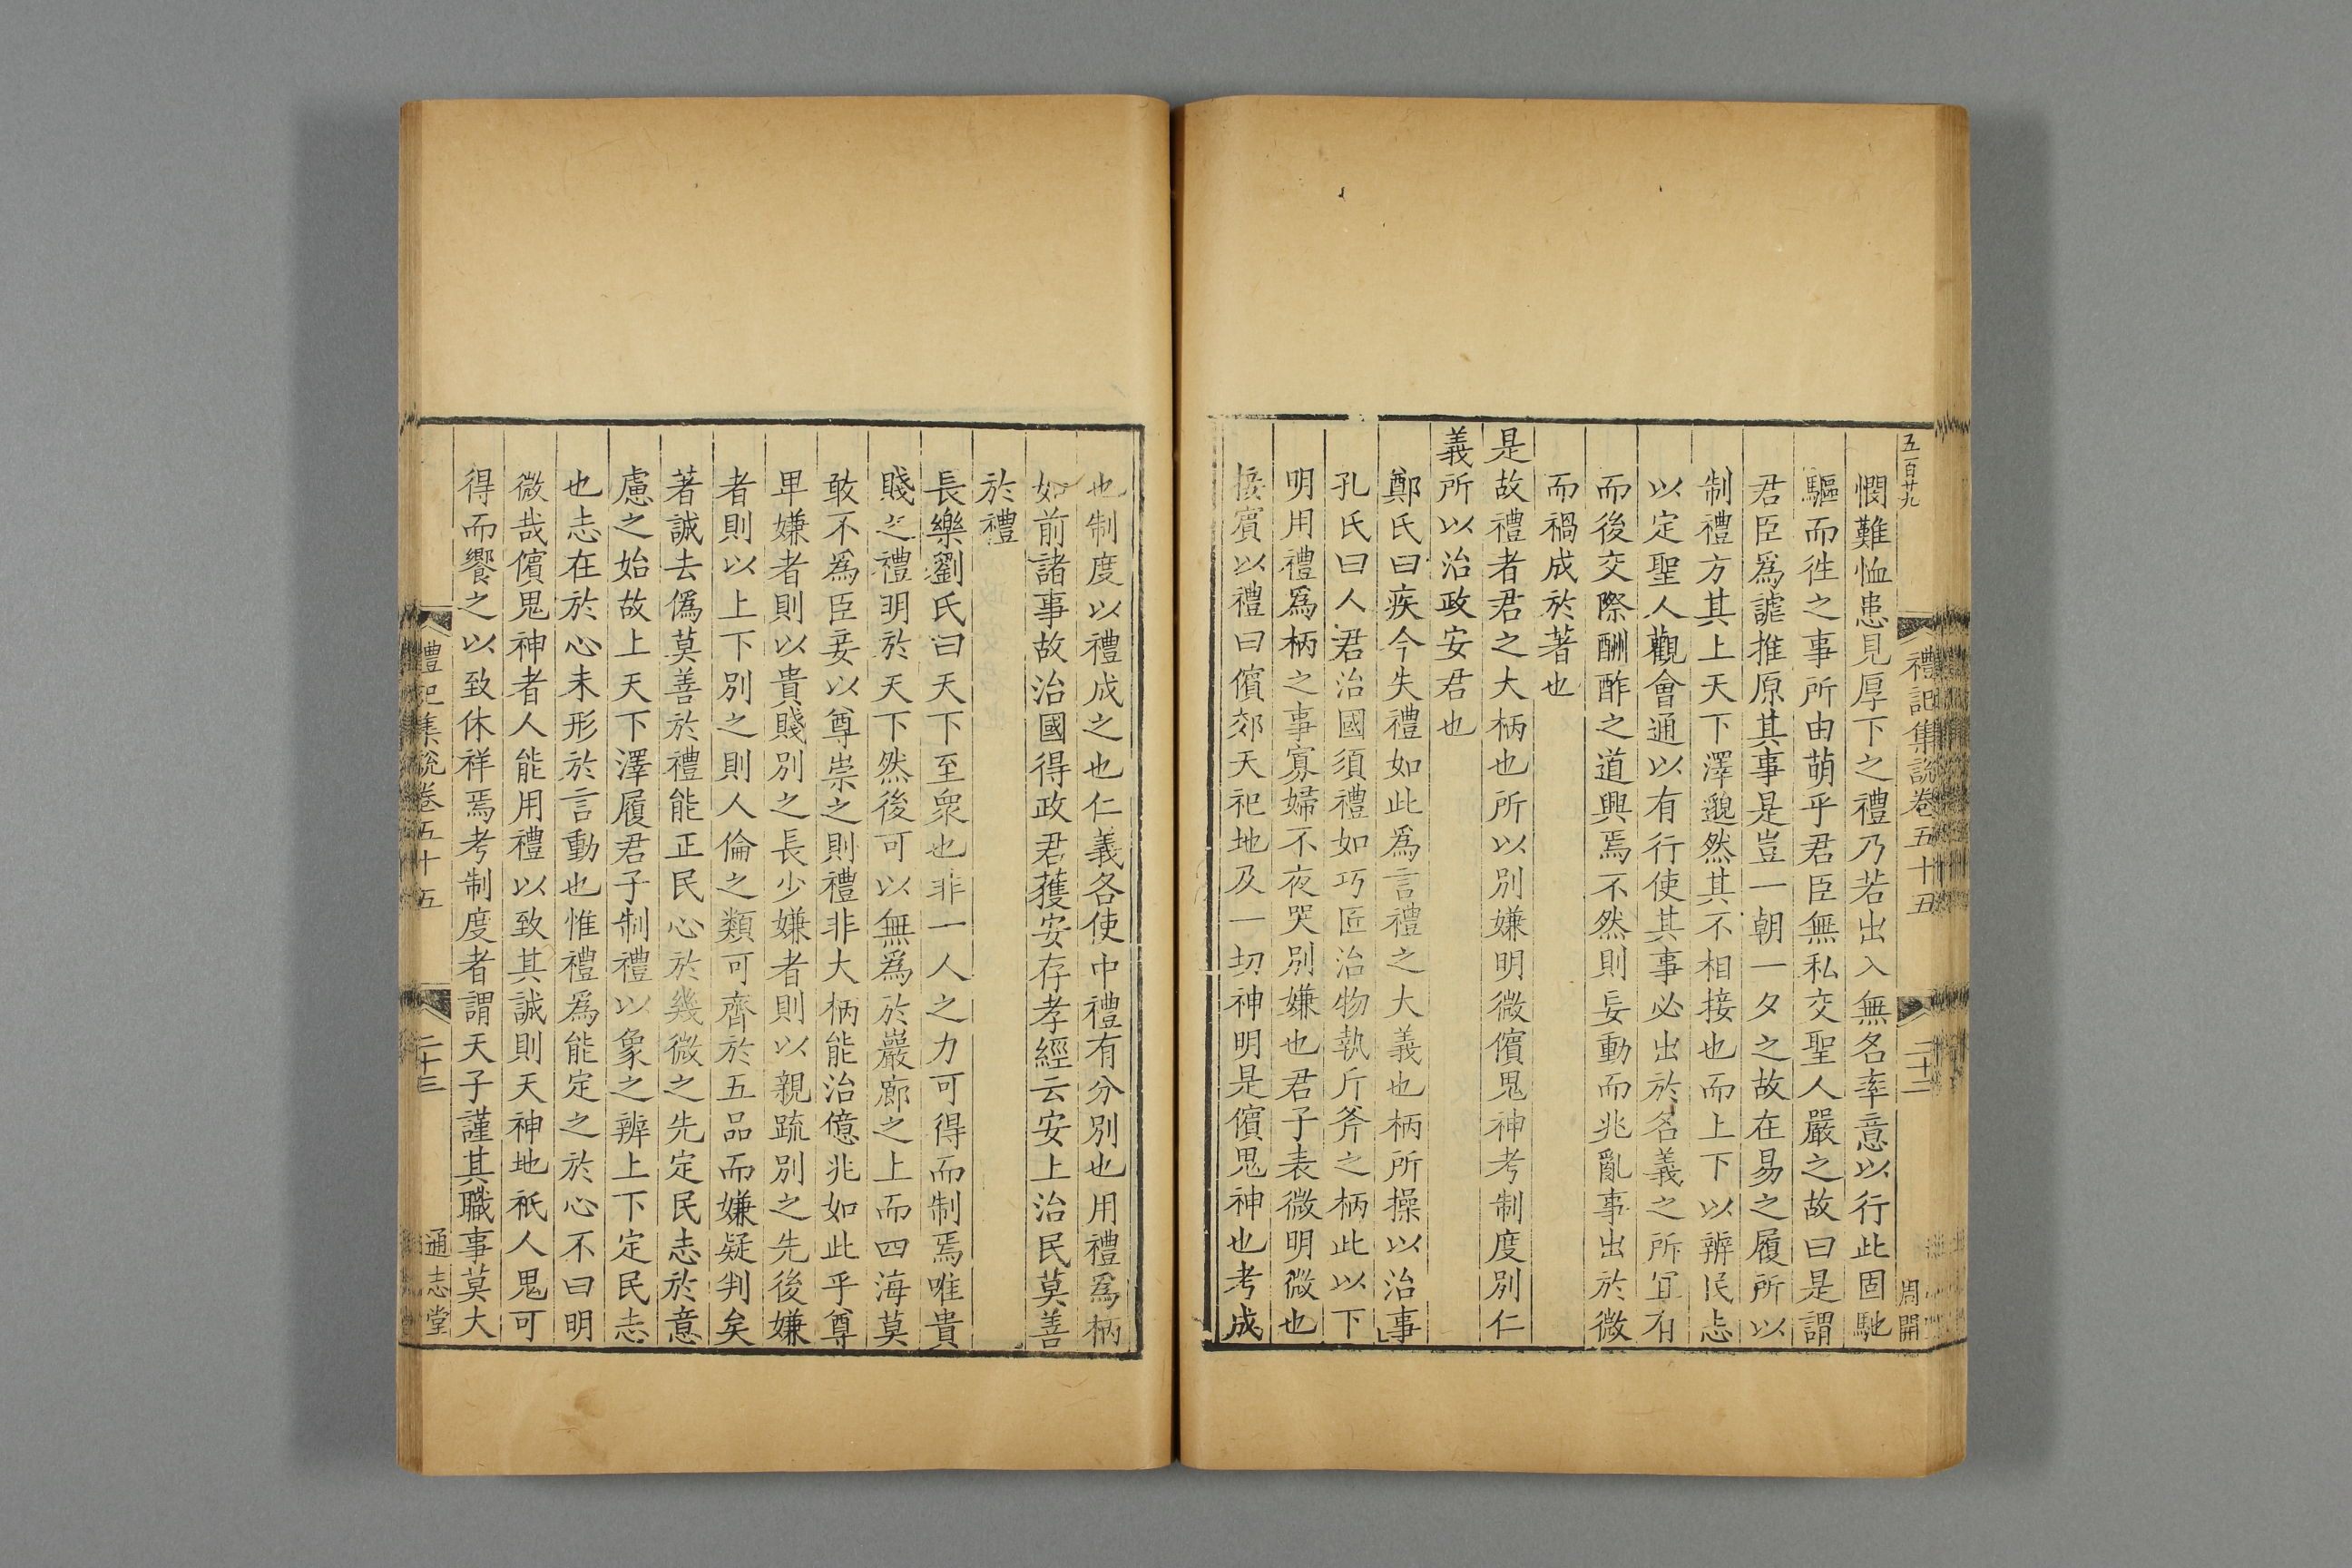 五百廿九
禮記集說卷五十五
二十二
周開
憫難恤患見厚下之禮乃若出入無名率意以行此固馳
驅而徃之事所由萌乎君臣無私交聖人嚴之故曰是謂
君臣爲謔推原其事是豈一朝一夕之故在易之履所以
制禮方其上天下澤邈然其不相接也而上下以辨民志
以定聖人觀會通以有行使其事必出於名義之所宜有
而後交際酬酢之道興焉不然則妄動而兆亂事出於微
而禍成於著也
是故禮者君之大柄也所以別嫌明微儐鬼神考制度別仁
義所以治政安君也
鄭氏曰疾今失禮如此爲言禮之大義也柄所操以治事
孔氏曰人君治國須禮如巧匠治物執斤斧之柄此以下
明用禮爲柄之事寡婦不夜哭別嫌也君子表微明微也
接賓以禮曰儐郊天祀地及一切神明是儐鬼神也考成
也制度以禮成之也仁義各使中禮有分別也用禮爲柄
如前諸事故治國得政君獲安存孝經云安上治民莫善
於禮
長樂劉氏曰天下至衆也非一人之力可得而制焉唯貴
賤之禮明於天下然後可以無爲於巖廊之上而四海莫
敢不爲臣妾以尊崇之則禮非大柄能治億兆如此乎尊
卑嫌者則以貴賤別之長少嫌者則以親疏別之先後嫌
者則以上下別之則人倫之類可齊於五品而嫌疑判矣
著誠去僞莫善於禮能正民心於幾微之先定民志於意
慮之始故上天下澤履君子制禮以象之辨上下定民志
也志在於心未形於言動也惟禮爲能定之於心不曰明
微哉儐鬼神者人能用禮以致其誠則天神地祇人鬼可
得而饗之以致休祥焉考制度者謂天子謹其職事莫大
禮記集說卷五十五
二十三
通志堂